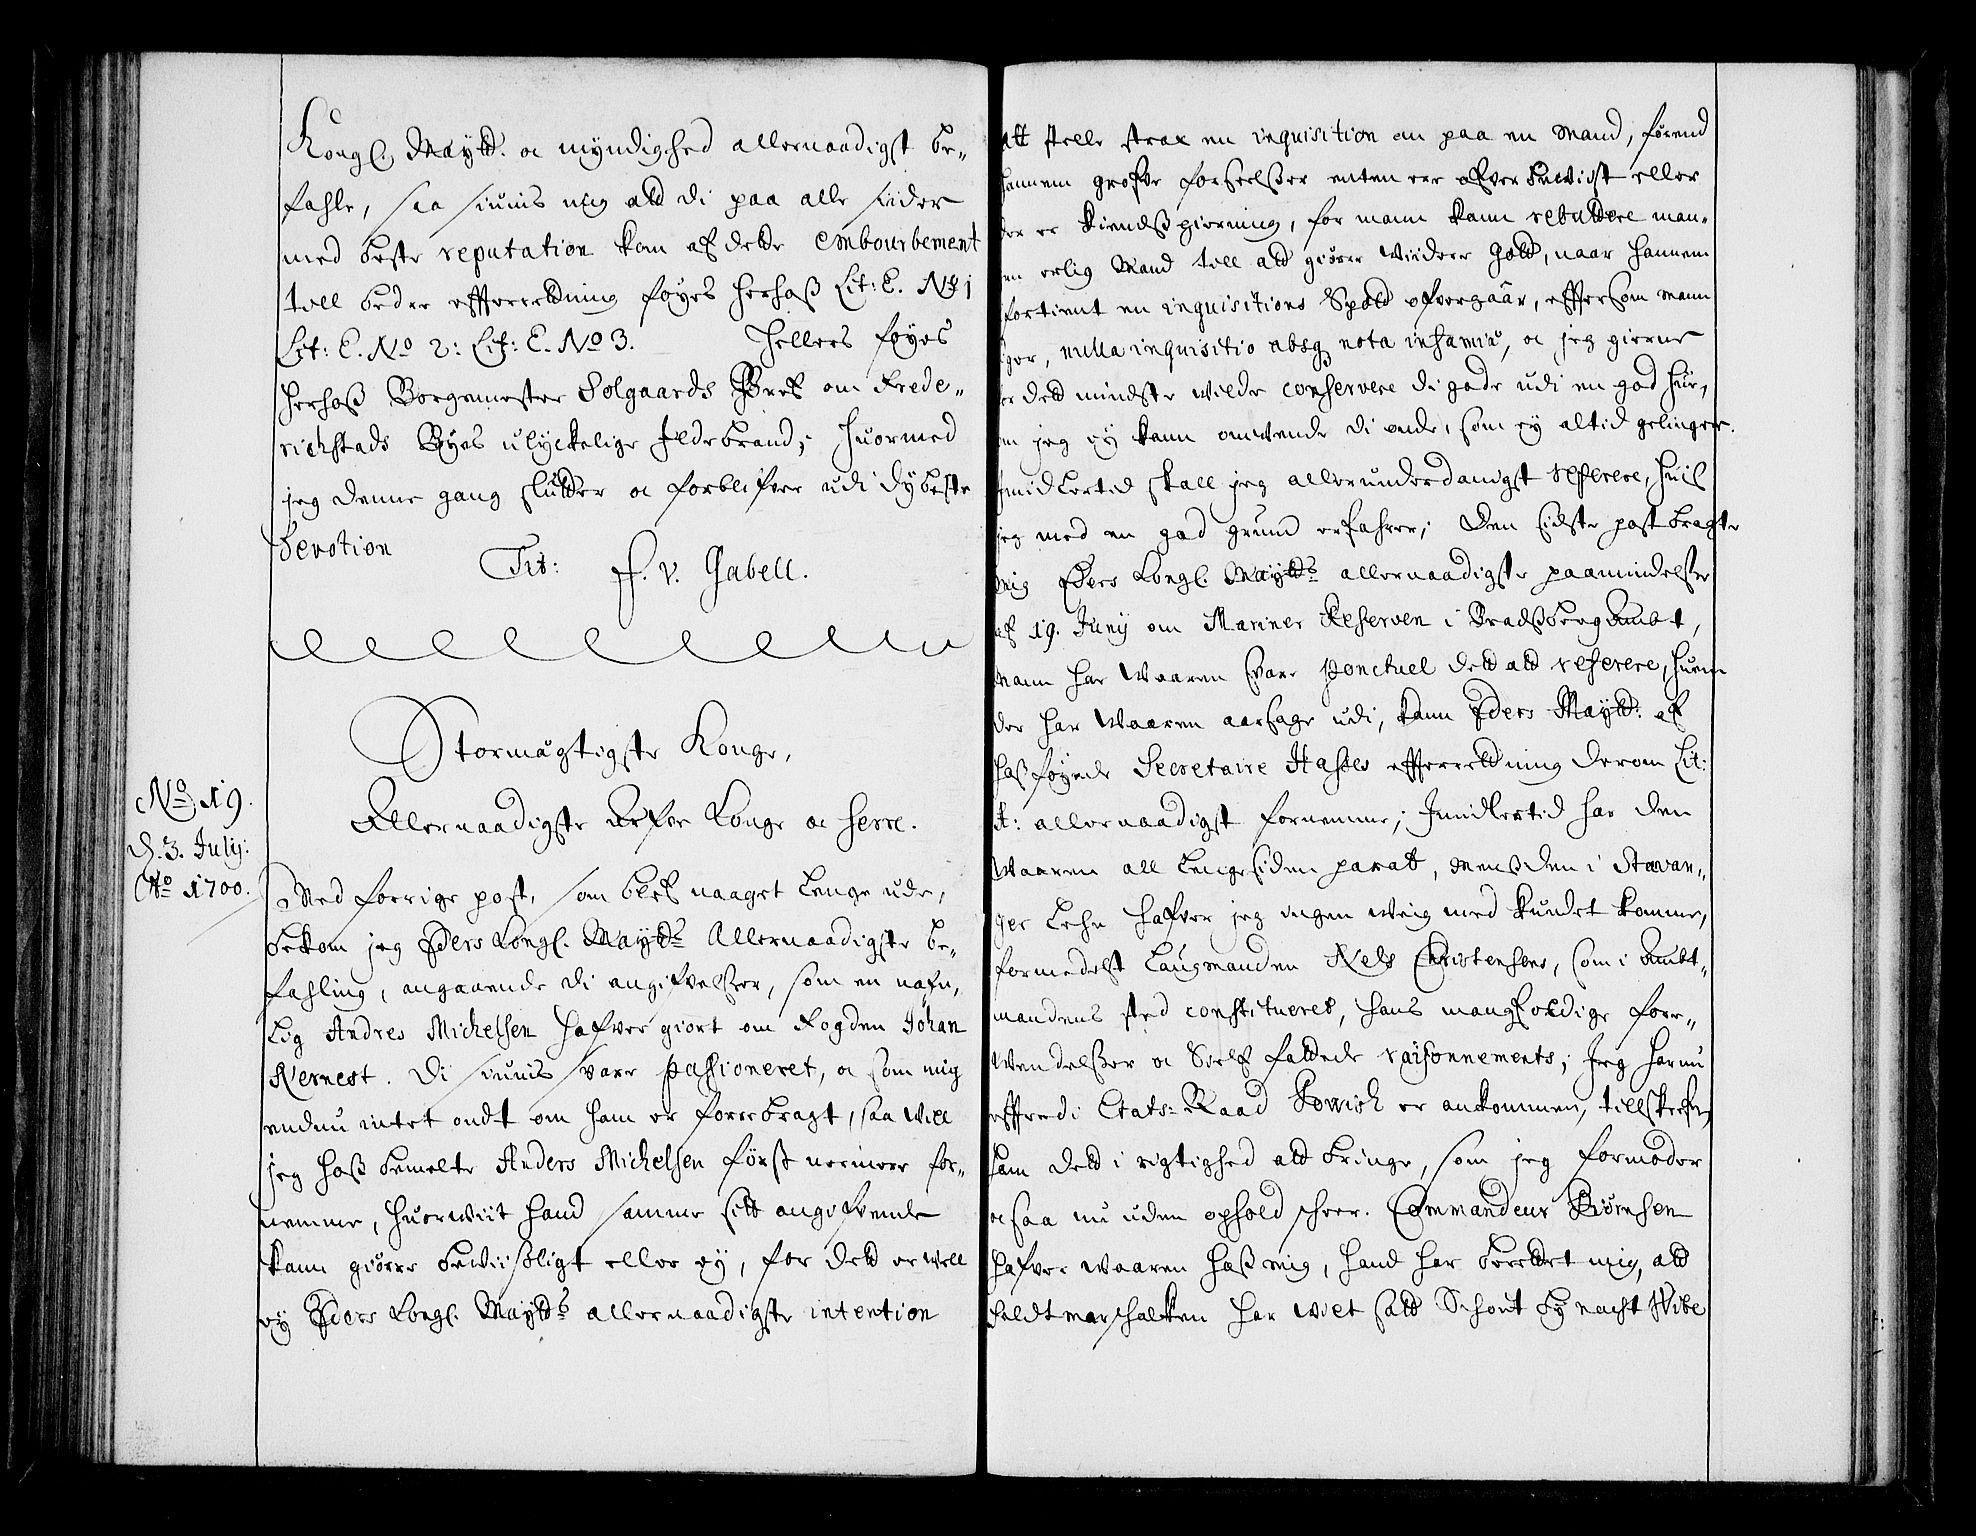 Kongl. Maytt. oc myndighed allernaadigst be-
fahle, saa siunis mig att di paa alle siider
med beste reputation kom af dette embourbement
till bedre effterretning føyes herhoß Lit: E. No 1
Lit: E. No 2: Lit: E. No 3. Hellers føyes
herhoß Borgemester Solgaards Bref om Frede-
richstads Byes ulyckelige Ildebrand; huormed
jeg denne gang slutter oc forblifver udi dybeste
Devotion
Tit: F. v. Gabell.
Stormägtigste Konge,
Allernaadigste Arfve Konge oc Herre.
No 19.
d. 3. July:
Ao 1700.
Med forrige post, som blef naaget lenge ude,
bekom jeg Eders Kongl. Maytts Allernaadigste be-
fahling, angaaende di angifvelßer, som en nafn-
lig Andres Michelsen hafver giort om Fogden Johan
Nernest. Di siunis svare passioneret, oc som mig
endnu intet ondt om ham er forrebragt, saa will
jeg hoß bemelte Anders Michelsen først nermere for-
nemme, huorwiit hand samme sitt angifvende
kann giørre bewiißligt eller ey, for dett er well
ey Eders Kongl. Maytts allernaadigste intention
att stelle strax en inquisition an paa en mand, førend
hannem grofve forseelßer enten ere ofverbewist eller
der er kiendßgierning, for mann kann rebuttere man-
en erlig mand till att giørre widere gott, naar hannem
fortient en inquisitions Spott ofvergaar, effterßom mann
siger, nulla inquisitio absq nota infamiæ, oc jeg gierne
for dett mindste wilde conservere di gode udi en god hur,
om jeg ey kann omvende di onde, som ey altid gelinger.
Imidlertid skall jeg allerunderdanigst referere, huis
jeg med en god grund erfahrer; Den sidste post bragte
mig Eders Kongl. Maytts allernaadigste paamindelße
af 19. Juny om Mariner Reserven i Bradßberg Ambt,
mann har waaren svare ponctuel dett att referere, huem
der har waaren aarsage udi, kann Eders Maytt: af
hoßføyede Secretaire Hastes effterretning derom Lit:
A: allernaadigst fornemme; Imidlertid har den
waaren all lengesiden parat, menß den i Stavan-
ger Lehn hafver jeg ingen weig med kundet komme,
formedelst Laugmanden Nels Christensens, som i Ambt-
mandens sted constitueret, hans mangfoldige fore-
wendelßer oc Sielf fattede raisonnements; Jeg har nu
efftredi Etats-Raad Powisk er ankommen, tillskrefve
ham dett i rigtighed att bringe, som jeg formoder
oc saa nu uden ophold skeer. Commandeur Biørnsen
hafver waaren hoß mig, hand har berettet mig, att
Feldtmarschalken har wilt satt Schout by nacht Wibe